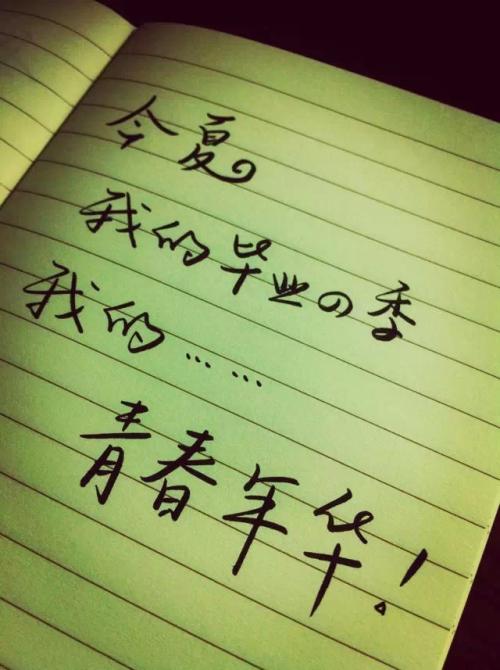 今夏の
我的毕业の季
我的……
青春年华!